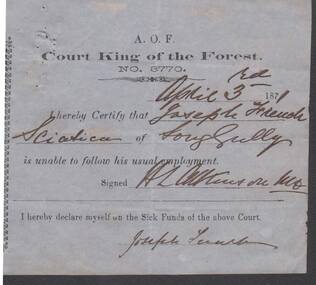 A. O. F.
Court King of the Forest.
NO. 6770.
April 3rd 1871
I hereby Certify that Joseph French
Sciatica of Long Gully
is unable to follow his usual employment.
Signed H L Atkinson MD
I hereby declare myself on the Sick Funds of the above Court.
Joseph French